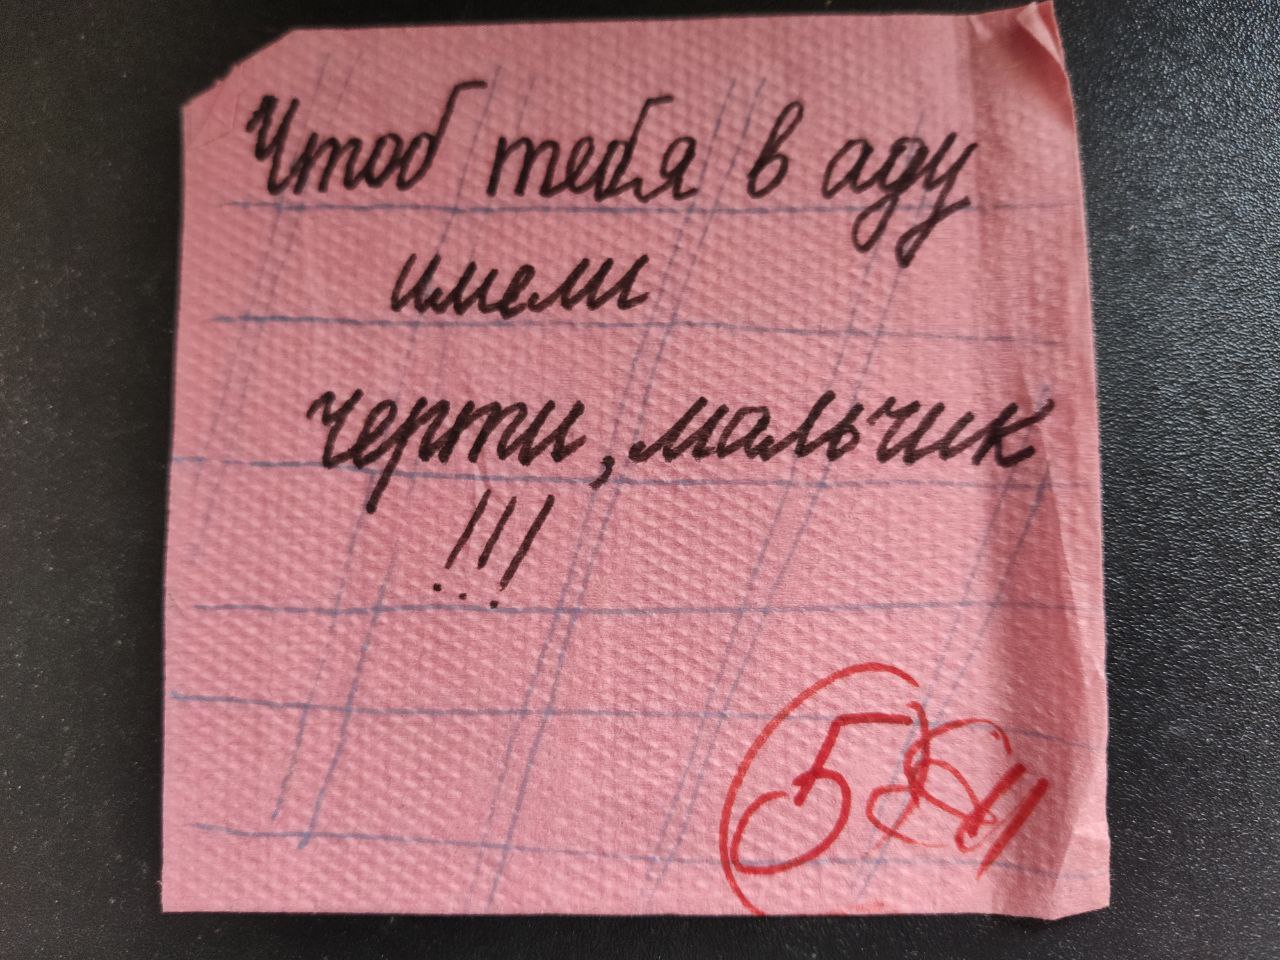 Чтоб тебя в аду
имели
черти, мальчик
!!!
5